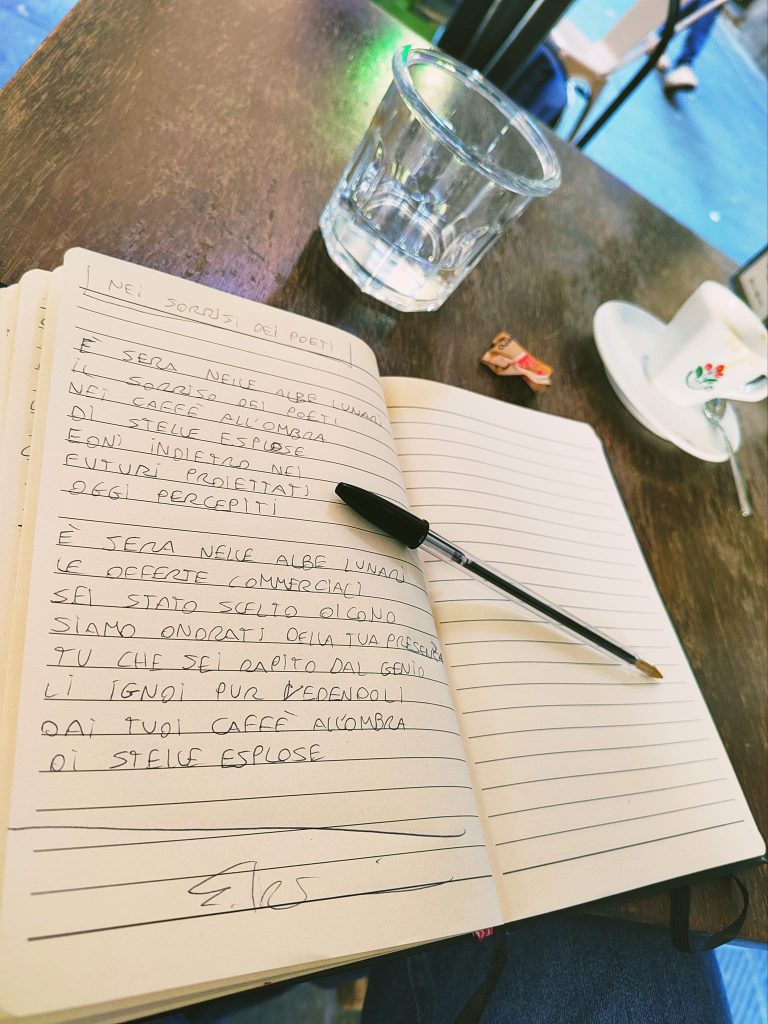 NEI SORRISI DEI POETI
È SERA NELLE ALBE LUNARI
IL SORRISO DEI POETI
NEI CAFFÈ ALL'OMBRA
DI STELLE ESPLOSE
EONI INDIETRO NEI
FUTURI PROIETTATI
OGGI PERCEPITI
È SERA NELLE ALBE LUNARI
LE OFFERTE COMMERCIALI
SEI STATO SCELTO DICONO
SIAMO ONORATI DELLA TUA PRESENZA
TU CHE SEI RAPITO DAL GENIO
LI IGNOI PUR VEDENDOLI
DAI TUOI CAFFÈ ALL'OMBRA
DI STELLE ESPLOSE